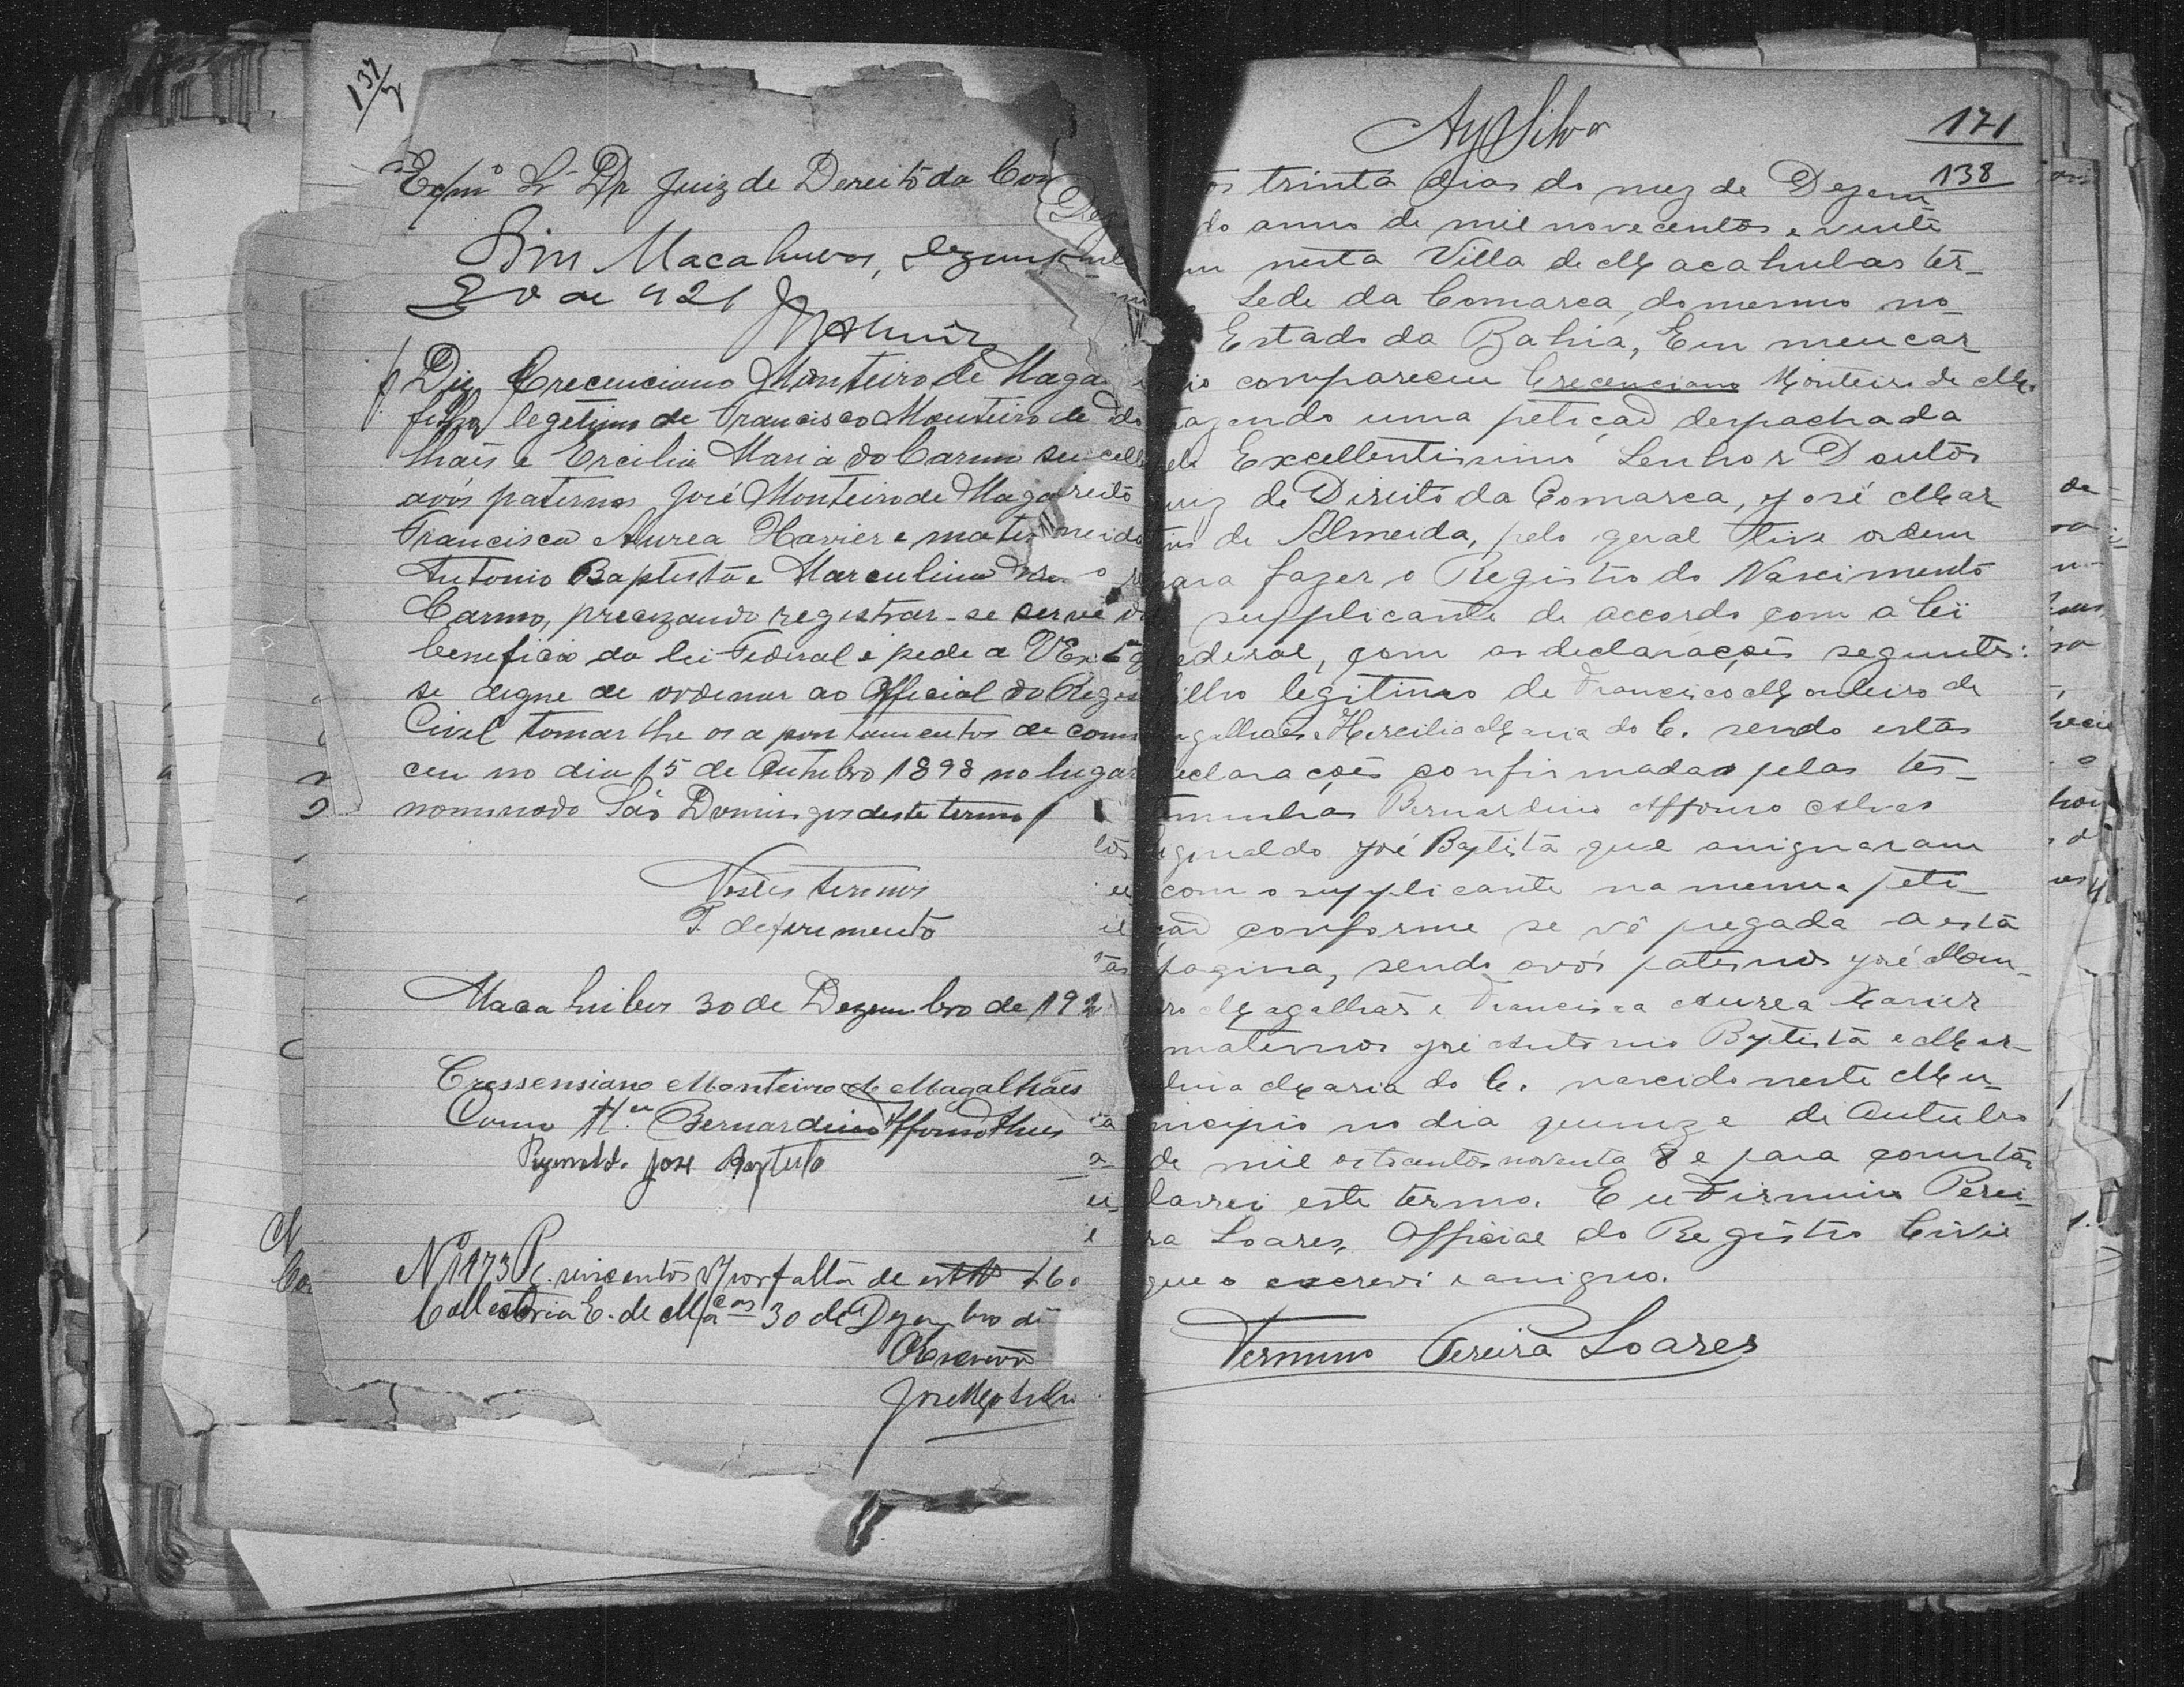 137
Exmº Sr Dr Juiz de Dereito da Com
Sim Macahubas, Dezembro
30 de 921
Diz Crecenciano Monteiro de Maga
filho legetimo de Francisco Monteiro de
lhães e Ercilia Maria do Carmo seu
avós paternos José Monteiro de Maga
Francisca Aurea Xavier e mater
Antonio Baptista e Marculina
Carmo, precizando registrar-se serve
beneficio da lei Federal e pede a VExcª
se digne de ordenar ao Official do Regis
Civil tomar lhe os apontamentos de como
ceu no dia 15 de Outubro 1898 no lugar
nominado São Domingos deste termo
Nestes termos
P. deferimento
Macahubas 30 de Dezembro de 192
Cressensiano Monteiro de Magalhães
Como tt.as Bernardino Affonso Alves
Reginaldo José Baptista
Nº 1173 P. por falta de
Collectoria E. de Mcas 30 de Dezembro de
O Escrivão
171
138
os trinta dias do mez de Dezem
do anno de mil novecentos e vinte
um nesta Villa de Macahubas ter-
Sede da Comarca, do mesmo no-
Estado da Bahia, Em meu car
rio compareceu Crecenciano Monteiro de M.
trazendo uma petição despachada
pelo Excellentissimo Senhor Doutor
Juiz de Direito da Comarca, José Mar
tins de Almeida, pelo qeral tive ordem
para fazer o Registro do Nascimento
supplicante de accordo com a lei
Federal, com as declarações seguintes:
filho legitimo de Francisco Monteiro de
agalhães e Hercilia Maria do C. sendo estas
declarações confirmadas pelas tes-
temunhas Bernardino Affonso Alves
Reginaldo José Baptista que assignaram
com o supplicante na mesma peti-
ção conforme se vê pregada a esta
pagina, sendo avós paternos José Mon-
ro Magalhães e Francisca Aurea Xavier
maternos José Antonio Baptista e Mar-
lina Maria do C. nascido neste Mu-
nicipio no dia quinze de Outubro
de mil oitocentos noventa 8 e para constar
lavrei este termo. Eu Firmino Perei-
ra Soares, Official do Registro Civil
que o escrevi e assigno.
Fermino Pereira Soares